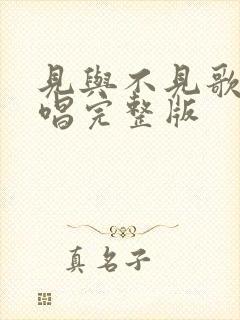 見與不見歌
唱完整版
真名子